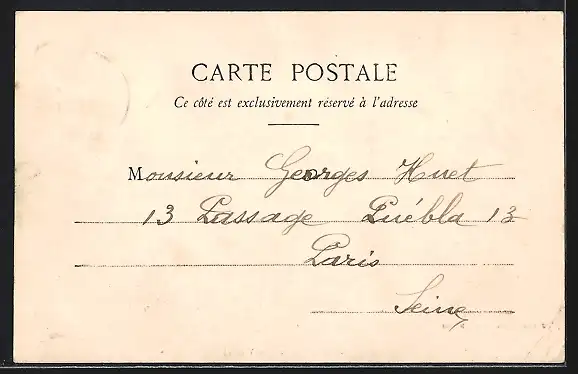 CARTE POSTALE
Ce côté est exclusivement réservé à l'adresse
Monsieur Georges Huet
13 Passage Puébla 13
Paris
Seine